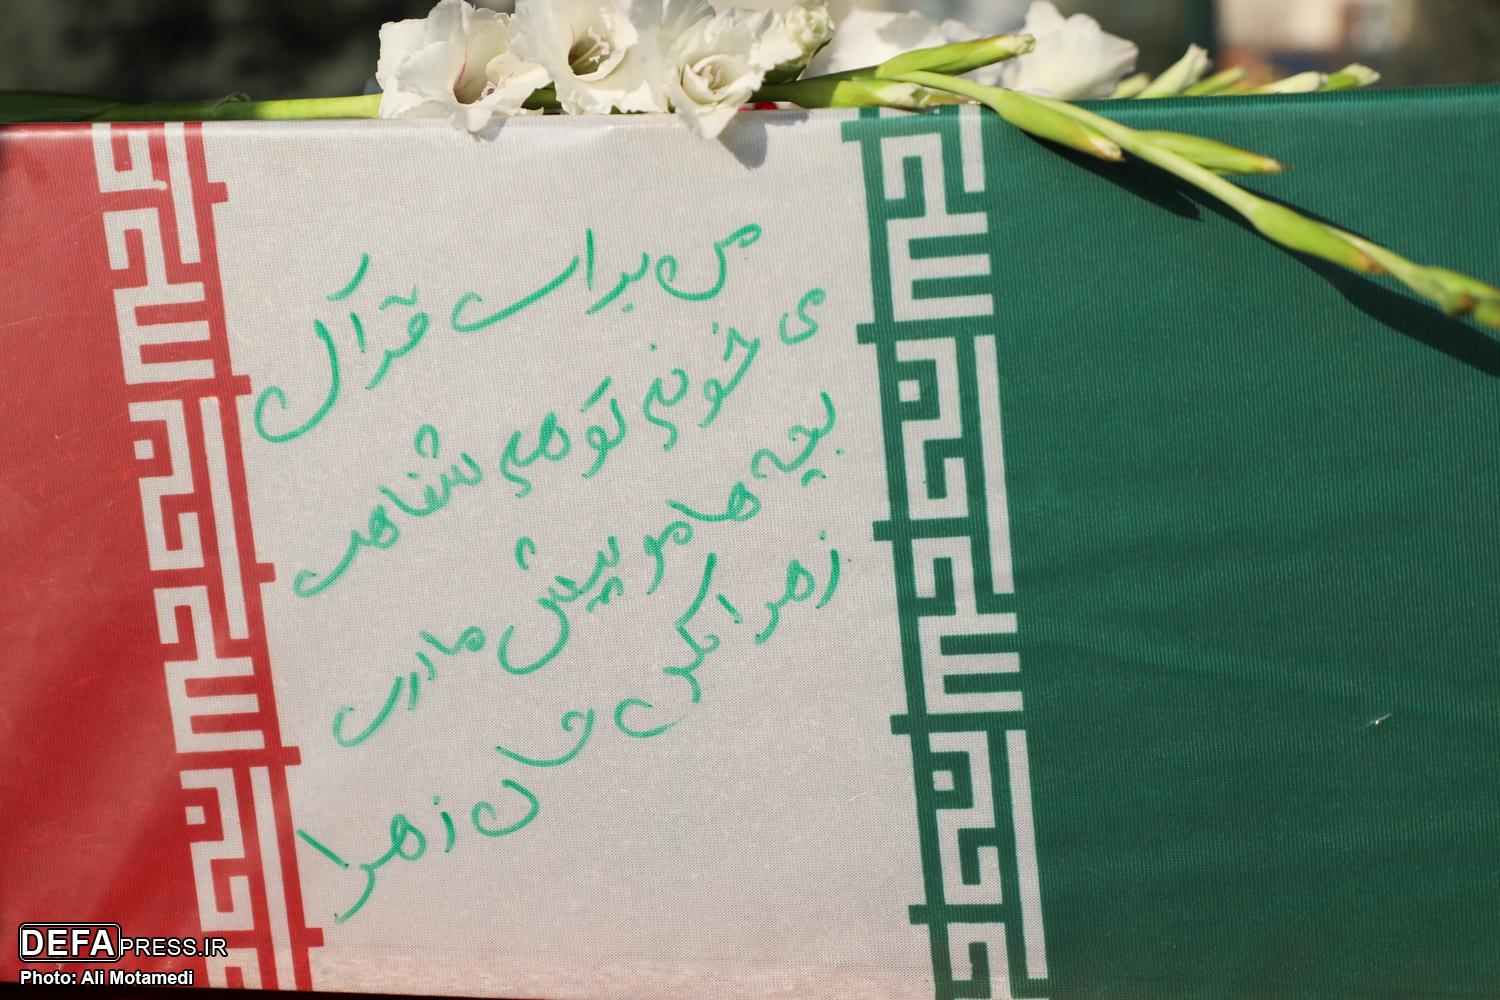 من برات قرآن
می خونم تو هم شفاعت
بچه هامو پیش مادرت
زهرا بکن جان زهرا
DEFAPRESS.IR
Photo: Ali Motamedi